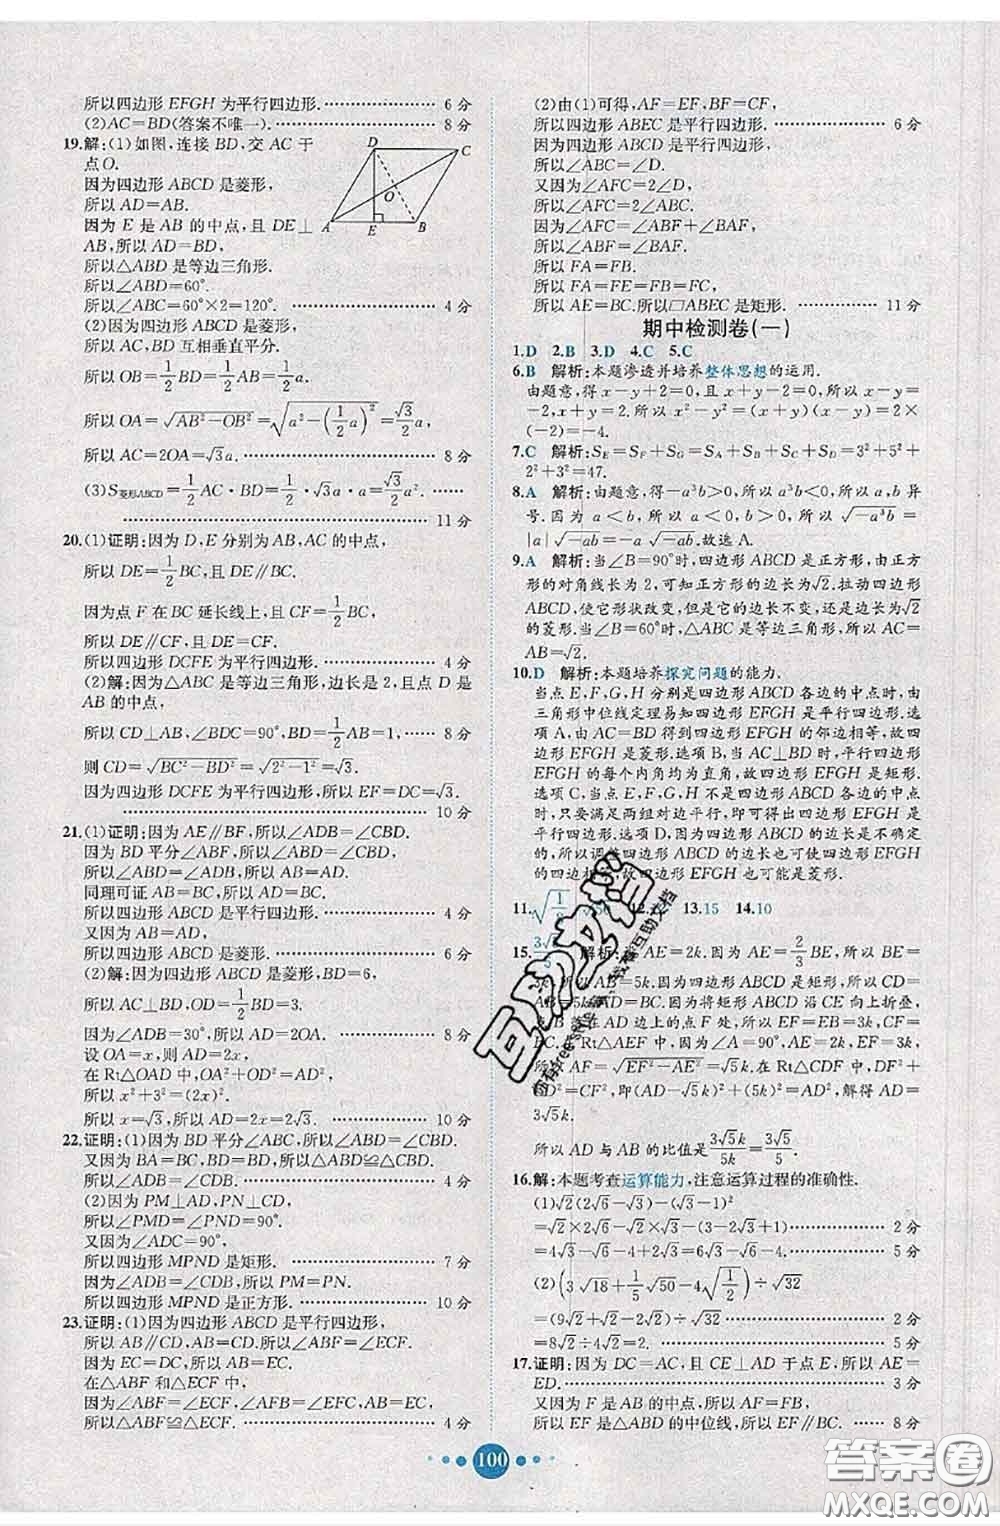 所以四边形 EFGH 为平行四边形. 6 分
(2)AC=BD(答案不唯一). 8 分
19.解:(1)如图,连接 BD,交 AC 于
点O.
因为四边形 ABCD 是菱形,
所以 AD=AB.
因为 E 是 AB 的中点,且 DE⊥
AB,所以 AD=BD,
所以△ABD 是等边三角形.
所以∠ABD=60°.
所以∠ABC=60°×2=120°. 4 分
(2)因为四边形 ABCD 是菱形,
所以 AC,BD 互相垂直平分.
所以 OB=1/2BD=1/2AB=1/2a.
所以 OA=√(AB²-OB²)=√(a²-(1/2a)²)=√3/2a,
所以 AC=2OA=√3a. 8 分
(3)S菱形ABCD=1/2AC·BD=1/2·√3a·a=√3/2a².
11 分
D
C
O
A
E
B
20.(1)证明:因为 D,E 分别为 AB,AC 的中点,
所以 DE=1/2BC,
因为点 F 在 BC 延长线上,且 CF=1/2BC,
所以 DE∥CF,且 DE=CF.
所以四边形 DCFE 为平行四边形. 4 分
(2)解:因为△ABC 是等边三角形,边长是 2,且点 D 是
AB 的中点,
所以 CD⊥AB,∠BDC=90°,BD=1/2AB=1, 8 分
则 CD=√(BC²-BD²)=√(2²-1²)=√3.
因为四边形 DCFE 为平行四边形,所以 EF=DC=√3.
10 分
21.(1)证明:因为 AE∥BF,所以∠ADB=∠CBD.
因为 BD 平分∠ABF,所以∠ABD=∠CBD,
所以∠ABD=∠ADB,所以 AB=AD.
同理可证 AB=BC,所以 AD=BC.
所以四边形 ABCD 是平行四边形. 4 分
又因为 AB=AD,
所以四边形 ABCD 是菱形. 6 分
(2)解:因为四边形 ABCD 是菱形,BD=6,
所以 AC⊥BD,OD=1/2BD=3.
因为∠ADB=30°,所以 AD=2OA. 8 分
设 OA=x,则 AD=2x,
在 Rt△OAD 中,OA²+OD²=AD²,
所以 x²+3²=(2x)².
所以 x=√3,所以 AD=2x=2√3. 10 分
22.证明:(1)因为 BD 平分∠ABC,所以∠ABD=∠CBD.
又因为 BA=BC,BD=BD,所以△ABD≌△CBD.
所以∠ADB=∠CDB. 4 分
(2)因为 PM⊥AD,PN⊥CD,
所以∠PMD=∠PND=90°.
又因为∠ADC=90°,
所以四边形 MPND 是矩形. 7 分
因为∠ADB=∠CDB,所以 PM=PN.
所以四边形 MPND 是正方形. 10 分
23.证明:(1)因为四边形 ABCD 是平行四边形,
所以 AB∥CD,AB=CD.所以∠ABF=∠ECF.
因为 EC=DC,所以 AB=EC.
在△ABF 和△ECF 中,
因为∠ABF=∠ECF,∠AFB=∠EFC,AB=EC,
所以△ABF≌△ECF. 4 分
(2)由(1)可得,AF=EF,BF=CF,
所以四边形 ABEC 是平行四边形. 6 分
因为四边形 ABCD 是平行四边形,
所以∠ABC=∠D.
又因为∠AFC=2∠D,
所以∠AFC=2∠ABC.
因为∠AFC=∠ABF+∠BAF,
所以∠ABF=∠BAF.
所以 FA=FB.
所以 FA=FE=FB=FC,
所以 AE=BC.所以□ABEC 是矩形. 11 分
期中检测卷(一)
1.D 2.B 3.D 4.C 5.C
6.B 解析:本题渗透并培养整体思想的运用.
由题意,得 x-y+2=0,且 x+y-2=0,所以 x-y=
-2,x+y=2.所以 x²-y²=(x+y)(x-y)=2×
(-2)=-4.
7.C 解析:S_E=S_F+S_G=S_A+S_B+S_C+S_D=3²+5²+
2²+3²=47.
8.A 解析:由题意,得-a³b>0,所以 a³b<0,所以 a,b 异
号.因为 a<b,所以 a<0,b>0,所以 √(-a³b)=
|a|√(-ab)=-a√(-ab).故选 A.
9.A 解析:当∠B=90°时,四边形 ABCD 是正方形,由正方
形的对角线长为 2,可知正方形的边长为√2.拉动四边形
ABCD,使它形状改变,但是它的边长不变,还是边长为√2
的菱形.当∠B=60°时,△ABC 是等边三角形,所以 AC=
AB=√2.
10.D 解析:本题培养探究问题的能力.
当点 E,F,G,H 分别是四边形 ABCD 各边的中点时,由
三角形中位线定理易知四边形 EFGH 是平行四边形.选
项 A,由 AC=BD 得到四边形 EFGH 的邻边相等,故四
边形 EFGH 是菱形.选项 B,当 AC⊥BD 时,平行四边形
EFGH 的每个内角均为直角,故四边形 EFGH 是矩形.
选项 C,当点 E,F,G,H 不是四边形 ABCD 各边的中点
时,只要满足两组对边平行,即可得出四边形 EFGH 是
平行四边形.选项 D,因为四边形 ABCD 的边长是不确定
的,所以调整四边形 ABCD 的边长也可使四边形 EFGH
的四边相等,故四边形 EFGH 也可能是菱形.
11. 12. 13.15 14.10
15. 解析: AE=2k.因为 AE=2/3BE,所以 BE=
AB=5k.因为四边形 ABCD 是矩形,所以 CD=
AB=5k,AD=BC.因为将矩形 ABCD 沿 CE 向上折叠,
落在 AD 边上的点 F 处,所以 EF=EB=3k,CF=
BC. Rt△AEF 中,因为∠A=90°,AE=2k,EF=3k,
所以 AF=√(EF²-AE²)=√5k.在 Rt△CDF 中,DF²+
CD²=CF²,即(AD-√5k)²+(5k)²=AD²,解得 AD=
3√5k.
所以 AD 与 AB 的比值是3√5k/5k=3√5/5.
16.解:本题考查运算能力,注意运算过程的准确性.
(1)√2(2√6-√3)-(√3-1)²
=√2×2√6-√2×√3-(3-2√3+1) 2 分
=4√3-√6-4+2√3=6√3-√6-4. 5 分
(2)(3√18+1/5√50-4√(1/2))÷√32
=(9√2+√2-2√2)÷4√2 2 分
=8√2÷4√2=2. 5 分
17.证明:因为 DC=AC,且 CE⊥AD 于点 E,所以 AE=
ED. 3 分
又因为 F 是 AB 的中点,
所以 EF 是△ABD 的中位线,所以 EF∥BC. 8 分
100
互助文档
答案圈
MXQE.COM